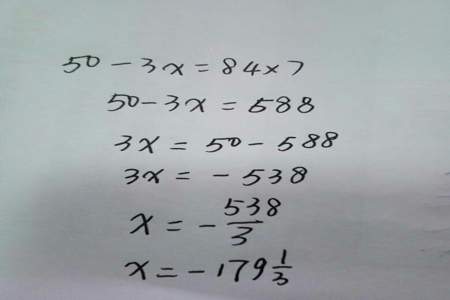 50 - 3x = 84 × 7
50 - 3x = 588
3x = 50 - 588
3x = - 538
x = - 538/3
x = - 179 1/3